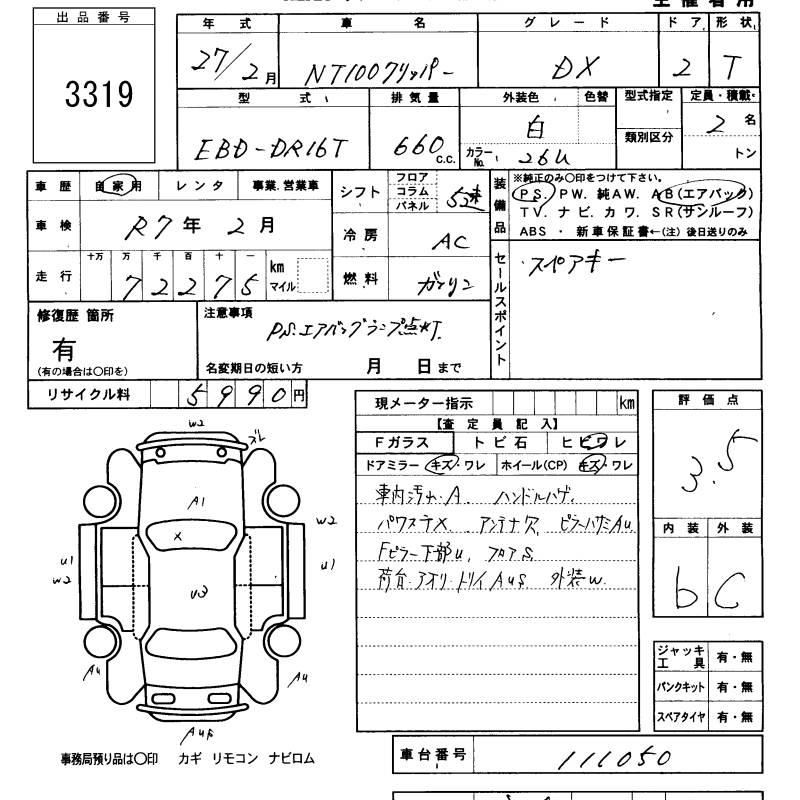 出品番号
3319
年式 車名 グレード ドア 形状
27/2月 NT100クリッパー DX 2 T
型式 排気量 外装色 色替 型式指定 定員・積載
EBD-DR16T 660c.c. 白 2名
カラーNo. 26U 類別区分 トン
車歴 自家用 レンタ 事業.営業車
シフト フロア コラム パネル 5速
装備品 ※純正のみ〇印をつけて下さい。
PS. PW. 純AW. AB(エアバック)
TV. ナビ. カワ. SR(サンルーフ)
ABS ・ 新車保証書←(注) 後日送りのみ
車検 R7年 2月
冷房 AC
走行 十万 万 千 百 十 一 km マイル
72275
燃料 ガソリン
セールスポイント スペアキー
修復歴 箇所
有
(有の場合は〇印を)
注意事項
P.S.エアバッグランプ点灯
名変期日の短い方 月 日まで
リサイクル料 5990円
現メーター指示 km
【査定員記入】
Fガラス トビ石 ヒビワレ
ドアミラー キズ・ワレ ホイール(CP) キズ・ワレ
車内汚れ.A. ハンドルハゲ.
パワステX アンテナ欠. ピラーハサミAu
Fピラー下部u. フロアS
荷台.アオリ.トリイAus 外装w.
評価点
3.5
内装 外装
b C
w2
ズレ
A1
w2
X
u1
w2
u3
u1
Au
Au
Aus
ジャッキ工具 有・無
パンクキット 有・無
スペアタイヤ 有・無
事務局預り品は〇印 カギ リモコン ナビロム
車台番号 111050